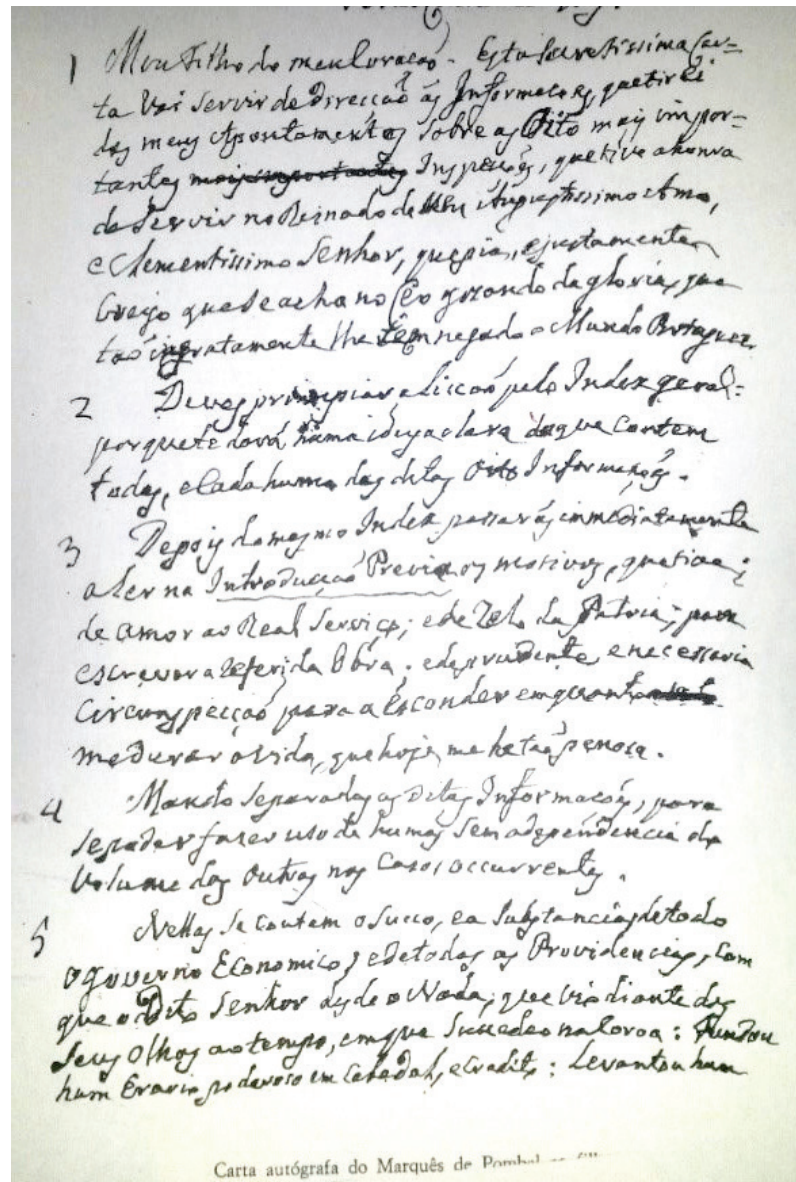 1 Meu Filho do meu Coraçaõ. Esta secretissima Car=
ta vai servir de Direcçaõ ás Informaçoẽs, que tirei
dos meus Apontamentos sobre as Oito mais impor=
tantes mais importantes Inspeçoẽs, que tive a honra
de servir no Reinado de Meu Augustissimo Amo,
e Clementissimo Senhor, que pia, e justamente
Creyo que se acha no Ceo gozando da gloria, que
taõ ingratamente lhe tem negado o Mundo Portuguez.
2 Deves principiar a Licçaõ pelo Index geral:
porque te dará huma idéya clara do que contem
todas, e Cada huma das ditas Oito Informaçoẽs.
3 Depois do mesmo Index passarás immediatamente
a ler na Introducçaõ Previa os motivos, que tive;
de amor ao Real Serviço; e de Zelo da Patria; para
escrever a referida Obra; e de prudente, e necessaria
Circunspecçaõ para a Esconder em quanto
me durar a vida, que hoje me he taõ penosa.
4 Mando separadas as Ditas Informaçoẽs, para
se poder fazer uso de humas sem a dependencia do
Volume das Outras nos Casos occurrentes.
5 Nellas se contem o succo, e a substancia de todo
o governo Economico; e de todas as Providencias, com
que o Dito Senhor desde o Nada, que vio diante dos
Seus Olhos ao tempo, em que succedeo na Coroa: Fundou
hum Erario poderoso em Cabedal, e Credito: Levantou hum
Carta autógrafa do Marquês de Pombal